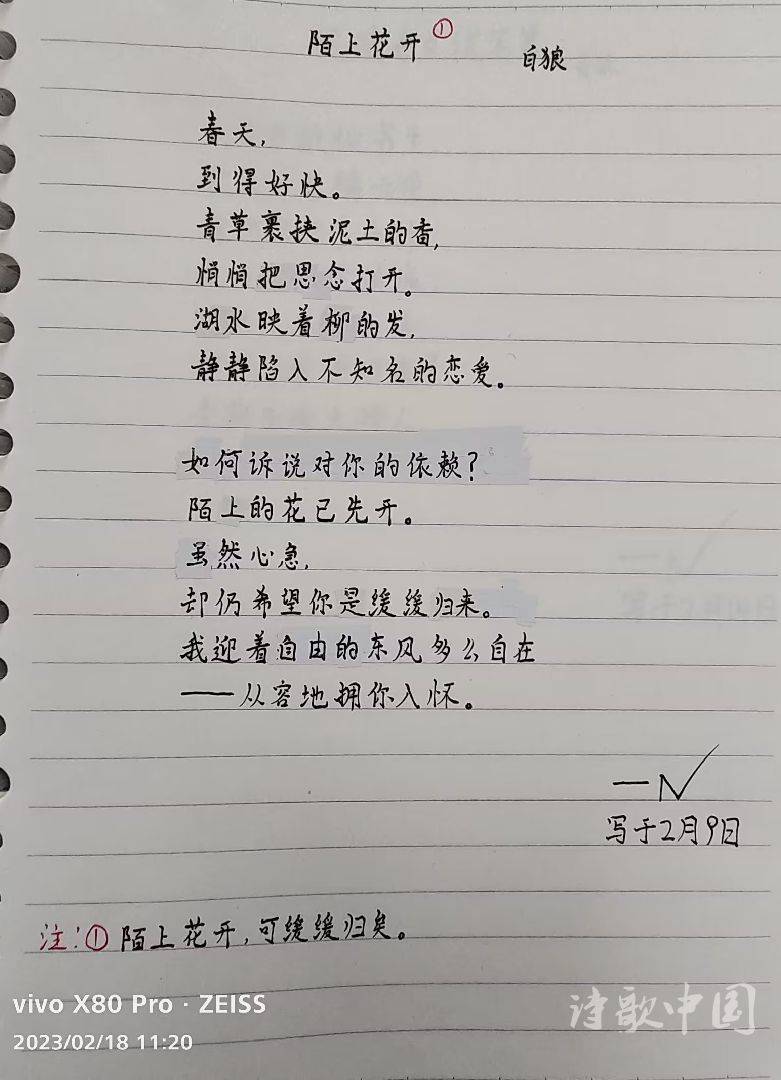 陌上花开①
白狼
春天,
到得好快。
青草裹挟泥土的香,
悄悄把思念打开。
湖水映着柳的发,
静静陷入不知名的恋爱。
如何诉说对你的依赖?
陌上的花已先开。
虽然心急,
却仍希望你是缓缓归来。
我迎着自由的东风多么自在
——从容地拥你入怀。
写于2月9日
注:①陌上花开,可缓缓归矣。
vivo X80 Pro · ZEISS
2023/02/18 11:20
诗歌中国